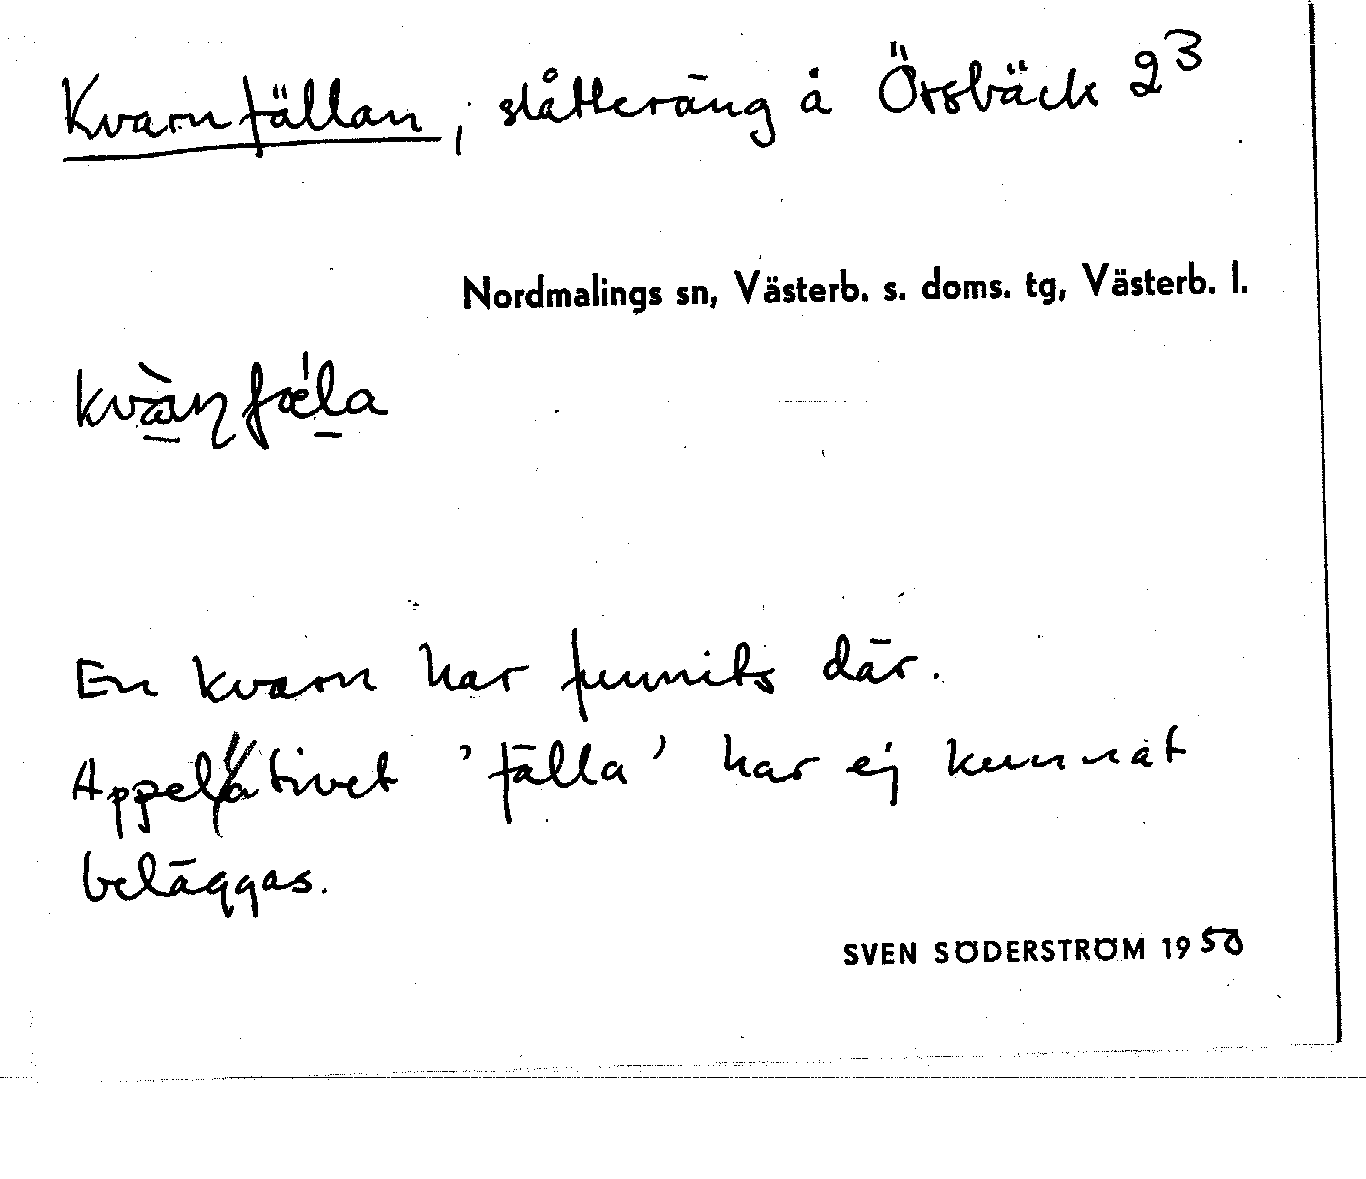 Kvarnfällan, slåtteräng å Örsbäck 2³
Nordmalings sn, Västerb. s. doms. tg, Västerb. l.
En kvarn har funnits där.
Appellativet 'fälla' har ej kunnat
beläggas.
SVEN SÖDERSTRÖM 1950